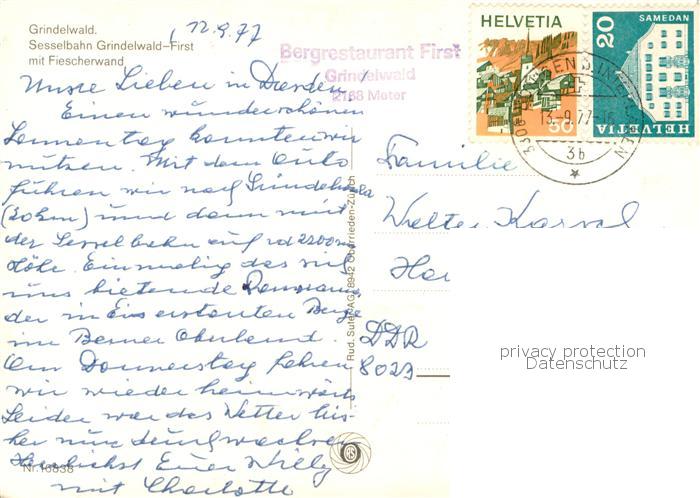 Grindelwald.
Sesselbahn Grindelwald–First
mit Fiescherwand
12.9.77
Bergrestaurant First
Grindelwald
2168 Meter
HELVETIA
50
SAMEDAN
20
HELVETIA
13.-9.77-16
3b
Unsre Lieben in Dresden
Einen wunderschönen
Sonnentag konnten wir
nützen. Mit dem Auto
führen wir nach Grindelwald
(20km) und dann mit
der Sesselbahn auf rd 2200m
Höhe. Einmalig das sich
uns bietende Panorama
der in Eis erstarrten Berge
im Berner Oberland.
Am Donnerstag fahren
wir wieder heimwärts
Leider war das Wetter bis-
her nur
Herzlichst Euer Willy
mit Charlotte
Nr. 16838
Rud. Suter AG, 8942 Oberrieden-Zürich
Familie
Walter
DDR
8023
privacy protection
Datenschutz